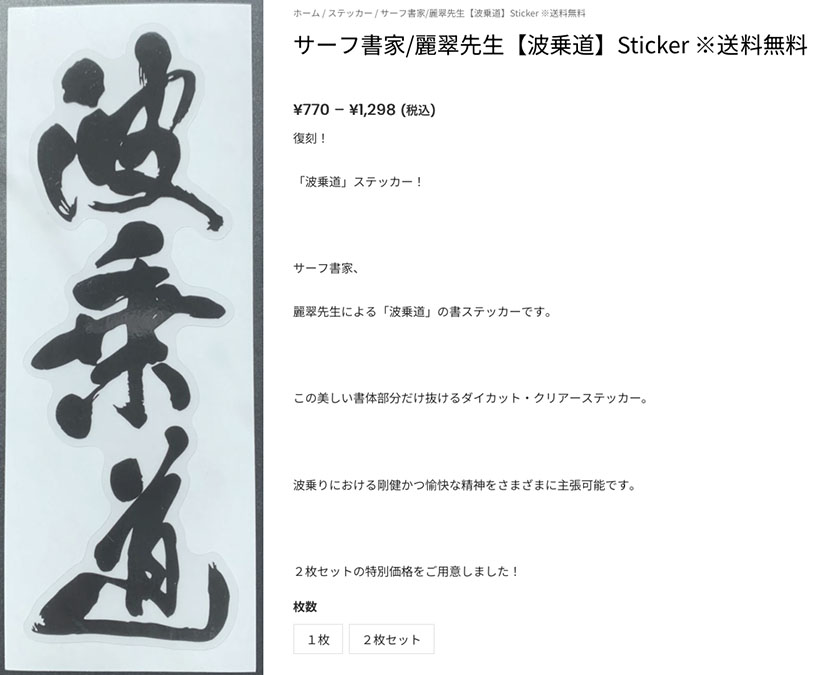 波乗道
ホーム / ステッカー / サーフ書家/麗翠先生【波乗道】Sticker ※送料無料
サーフ書家/麗翠先生【波乗道】Sticker ※送料無料
¥770 – ¥1,298 (税込)
復刻！
「波乗道」ステッカー！
サーフ書家、
麗翠先生による「波乗道」の書ステッカーです。
この美しい書体部分だけ抜けるダイカット・クリアーステッカー。
波乗りにおける剛健かつ愉快な精神をさまざまに主張可能です。
２枚セットの特別価格をご用意しました！
枚数
１枚 ２枚セット